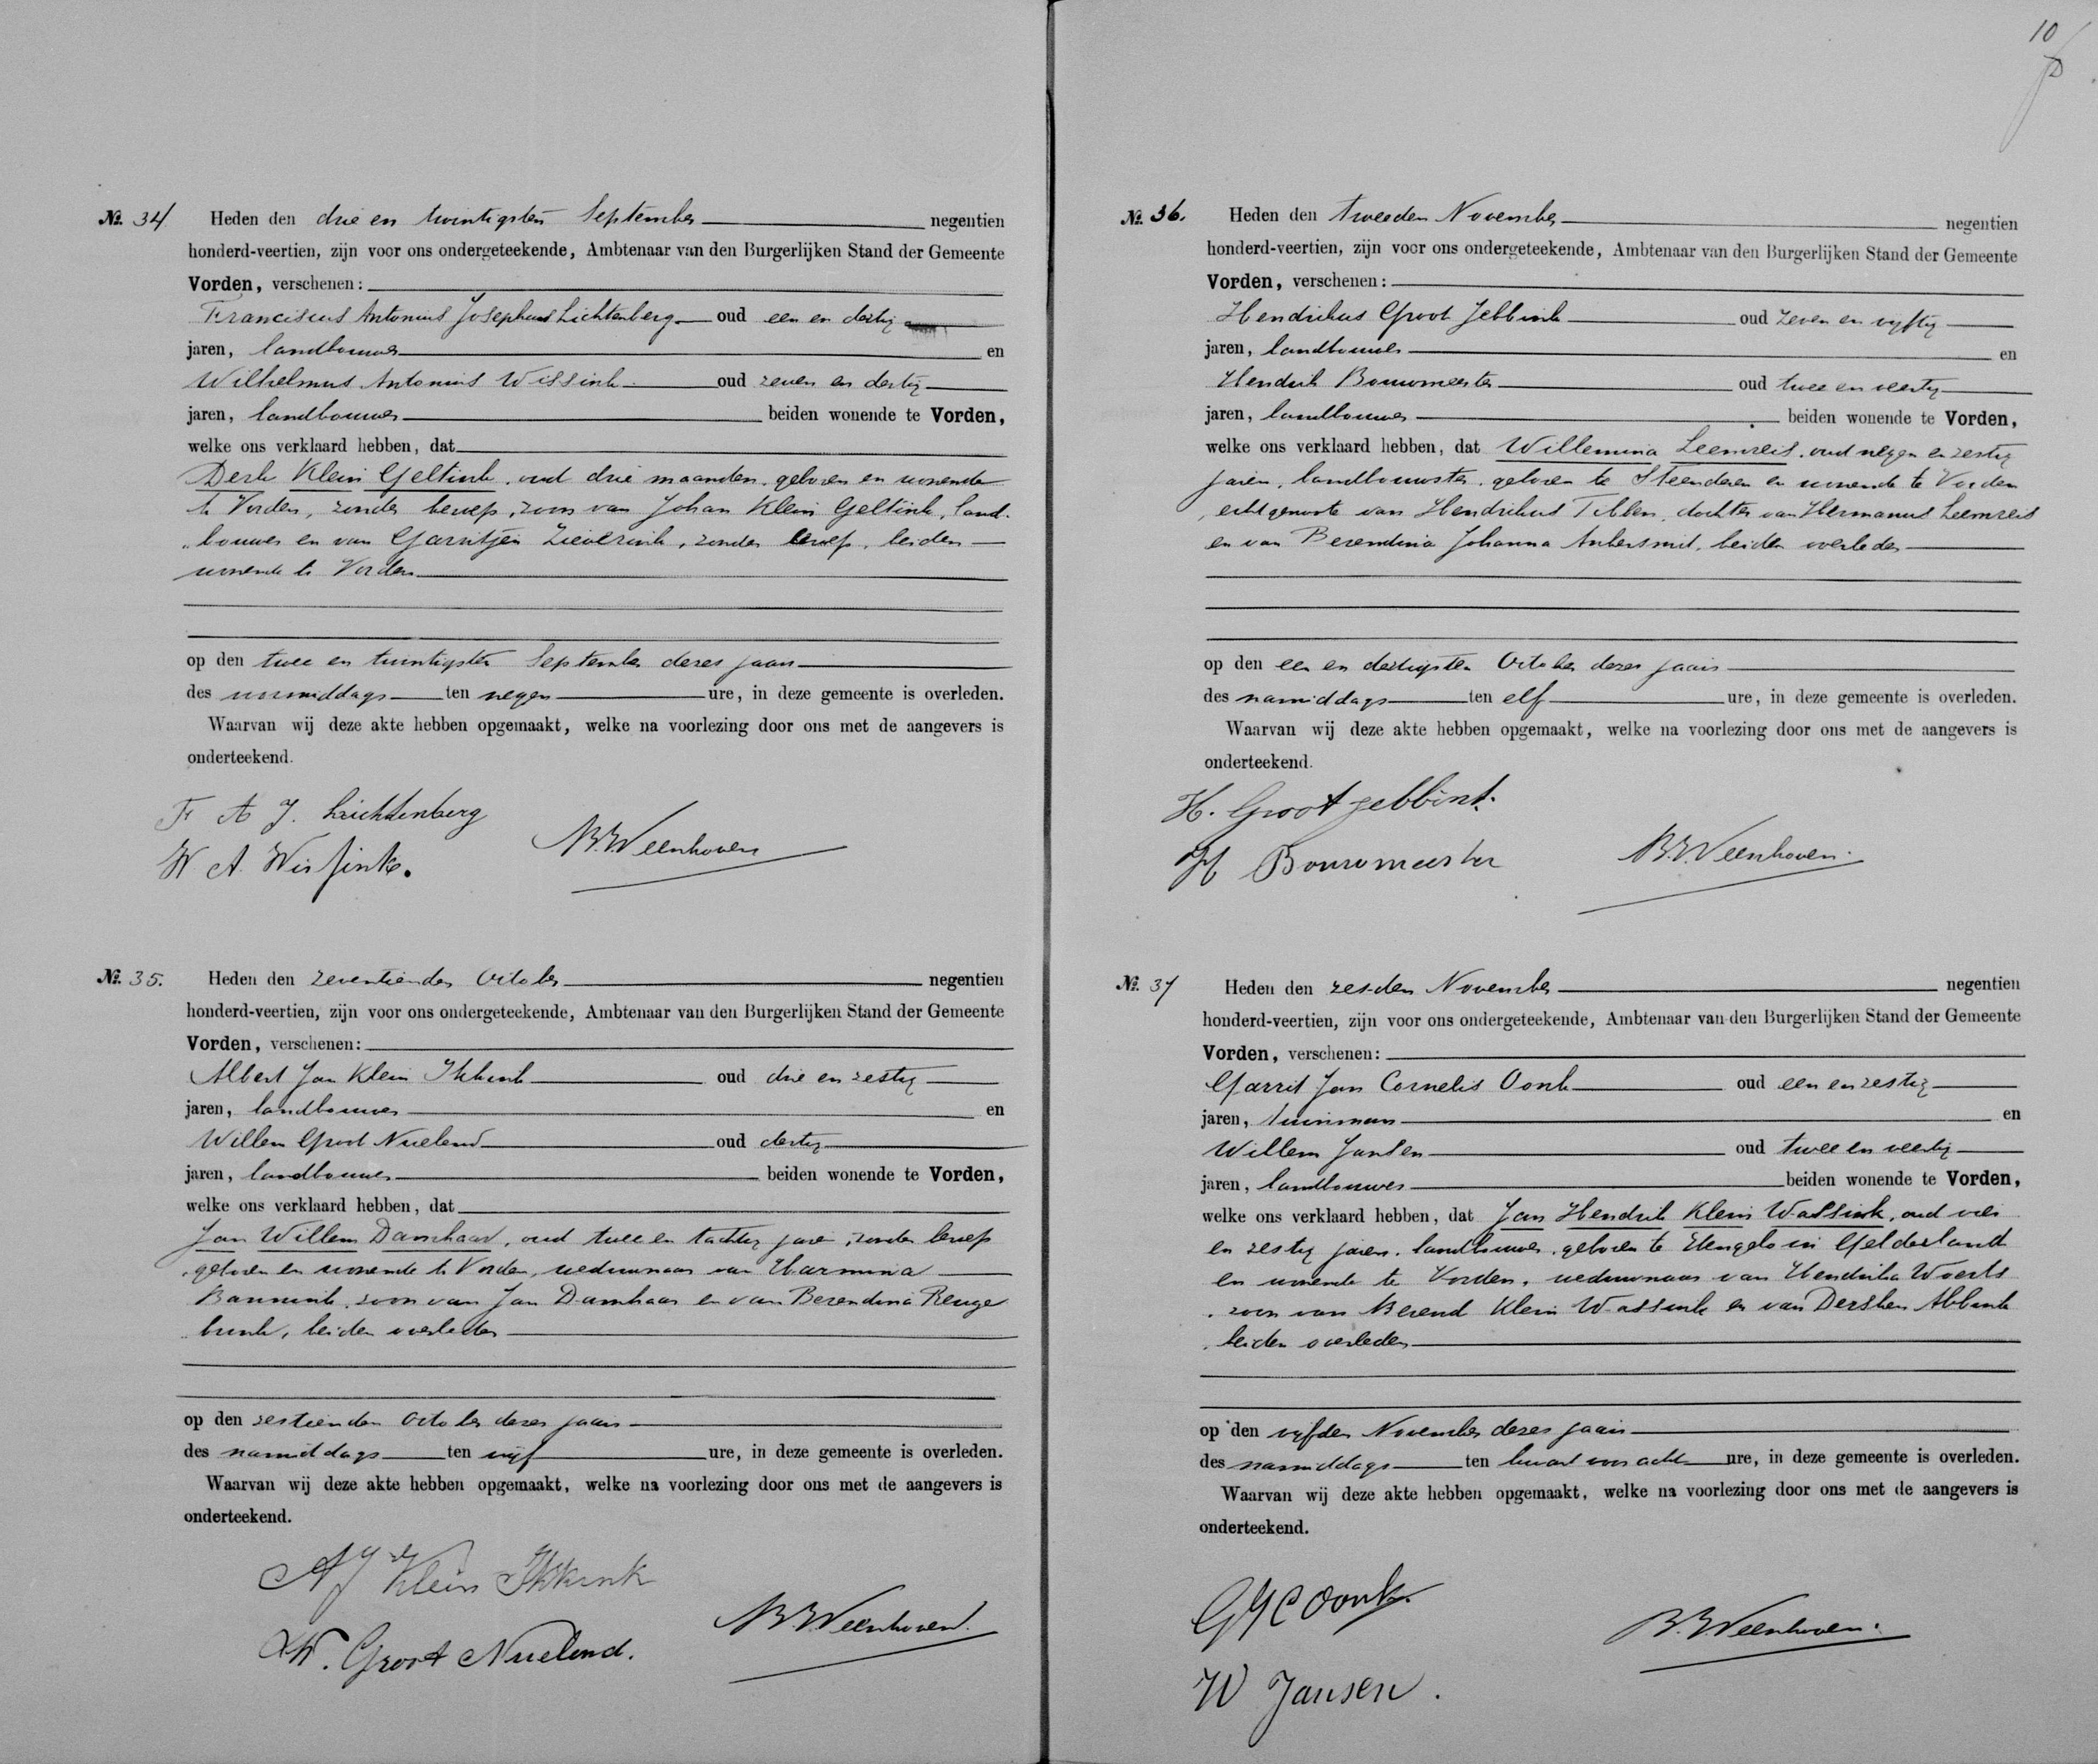 10
№. 34 Heden den drie en twintigsten September negentien
honderd-veertien, zijn voor ons ondergeteekende, Ambtenaar van den Burgerlijken Stand der Gemeente
Vorden, verschenen:
Franciscus Antonius Josephus Lichtenberg oud een en dertig
jaren, landbouwer en
Wilhelmus Antonius Wissink oud zeven en dertig
jaren, landbouwer beiden wonende te Vorden,
welke ons verklaard hebben, dat
Derk Klein Geltink, oud drie maanden, geboren en wonende
te Vorden, zonder beroep, zoon van Johan Klein Geltink, land-
bouwer en van Garritjen Zieverink, zonder beroep, beiden
wonende te Vorden
op den twee en twintigsten September dezes jaars
des voormiddags ten negen ure, in deze gemeente is overleden.
Waarvan wij deze akte hebben opgemaakt, welke na voorlezing door ons met de aangevers is
onderteekend.
F A J. Lichtenberg
W A. Wissink.
B.Weenhoven
№. 35. Heden den zeventienden October negentien
honderd-veertien, zijn voor ons ondergeteekende, Ambtenaar van den Burgerlijken Stand der Gemeente
Vorden, verschenen:
Albert Jan Klein Ikkink oud drie en zestig
jaren, landbouwer en
Willem Groot Nuelend oud dertig
jaren, landbouwer beiden wonende te Vorden,
welke ons verklaard hebben, dat
Jan Willem Damhaar, oud twee en tachtig jaren, zonder beroep
geboren en wonende te Vorden, weduwnaar van Harmina
Bannink, zoon van Jan Damhaar en van Berendina Reuge
brink, beiden overleden
op den zestienden October dezes jaars
des namiddags ten vijf ure, in deze gemeente is overleden.
Waarvan wij deze akte hebben opgemaakt, welke na voorlezing door ons met de aangevers is
onderteekend.
A J Klein Ikkink
W. Groot Nuelend.
B.Weenhoven.
№. 36. Heden den tweeden November negentien
honderd-veertien, zijn voor ons ondergeteekende, Ambtenaar van den Burgerlijken Stand der Gemeente
Vorden, verschenen:
Hendrikus Groot Jebbink oud zeven en vijftig
jaren, landbouwer en
Hendrik Bouwmeester oud twee en veertig
jaren, landbouwer beiden wonende te Vorden,
welke ons verklaard hebben, dat Willemina Leemreis, oud negen en zestig
jaren, landbouwster, geboren te Steenderen en wonende te Vorden
, echtgenoote van Hendrikus Tibben, dochter van Hermanus Leemreis
en van Berendina Johanna Ankersmit, beiden overleden
op den een en dertigsten October dezes jaars
des namiddags ten elf ure, in deze gemeente is overleden.
Waarvan wij deze akte hebben opgemaakt, welke na voorlezing door ons met de aangevers is
onderteekend.
H. Groot jebbink.
H Bouwmeester
B.Weenhoven.
№. 37 Heden den zesden November negentien
honderd-veertien, zijn voor ons ondergeteekende, Ambtenaar van den Burgerlijken Stand der Gemeente
Vorden, verschenen:
Garrit Jan Cornelis Oonk oud een en zestig
jaren, tuinman en
Willem Jansen oud twee en veertig
jaren, landbouwer beiden wonende te Vorden,
welke ons verklaard hebben, dat Jan Hendrik Klein Wassink, oud vier
en zestig jaren, landbouwer, geboren te Hengelo in Gelderland
en wonende te Vorden, weduwnaar van Hendrika Woerts
, zoon van Berend Klein Wassink en van Dersken Abbink
, beiden overleden
op den vijfden November dezes jaars
des namiddags ten kwart voor acht ure, in deze gemeente is overleden.
Waarvan wij deze akte hebben opgemaakt, welke na voorlezing door ons met de aangevers is
onderteekend.
G J C Oonk.
W Jansen.
B.Weenhoven.